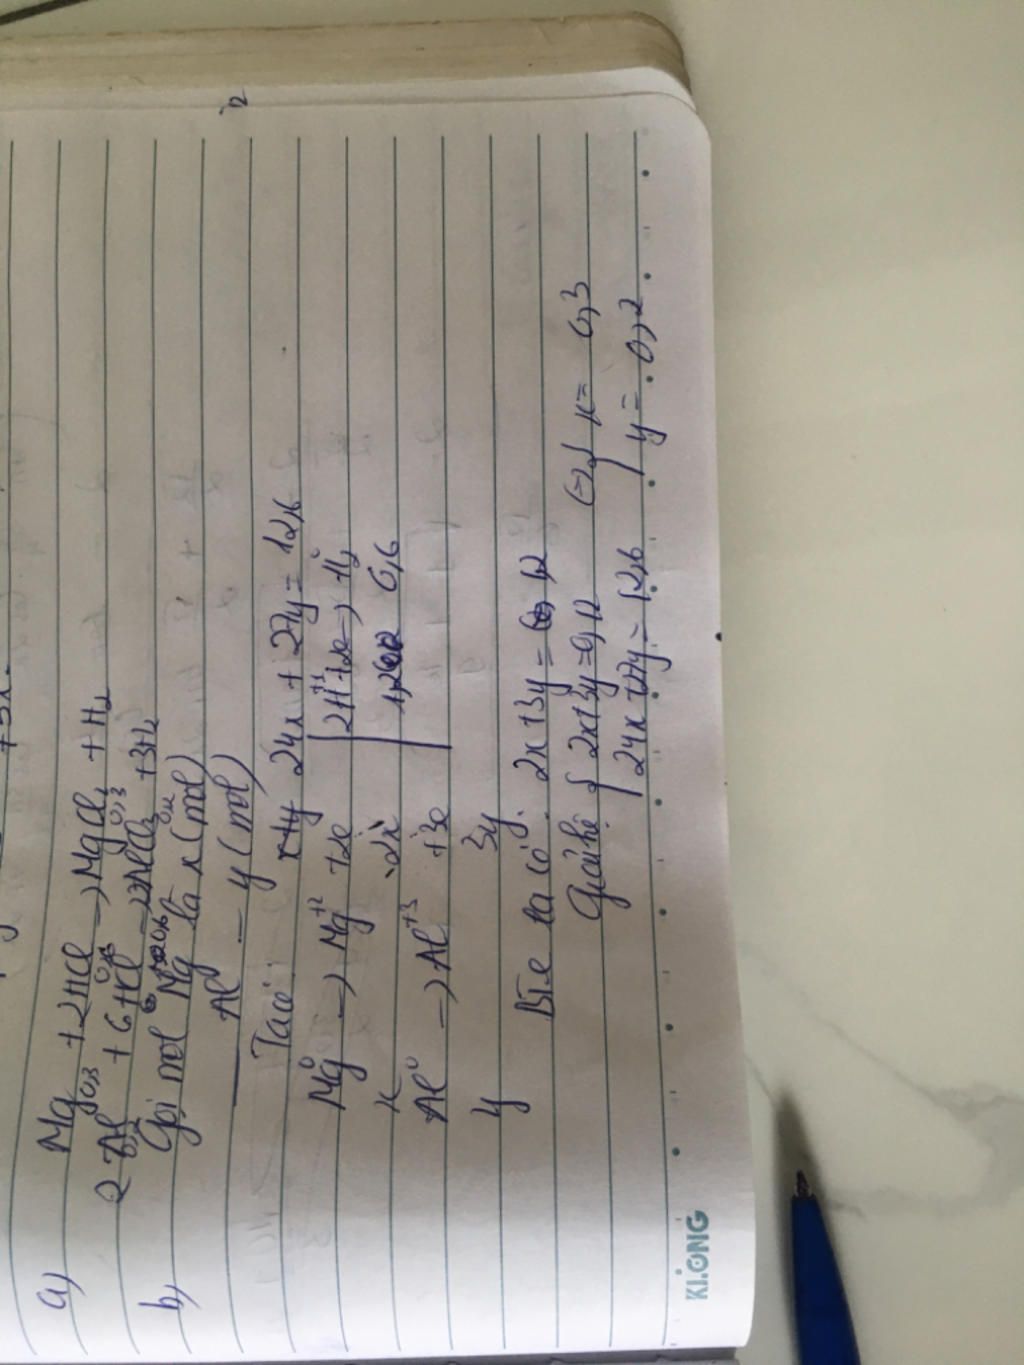 +3x.
a) Mg + 2HCl → MgCl₂ + H₂
0,3 0,3
2 Al + 6HCl → 2AlCl₃ + 3H₂
0,2 0,6 0,2
b) Gọi mol Mg là x (mol)
Al — y (mol)
Ta có: 24x + 27y = 12,6
Mg⁰ → Mg⁺² + 2e | 2H⁺¹ + 2e → H₂⁰
x 2x 1,2 0,6
Al⁰ → Al⁺³ + 3e
y 3y
BTe ta có: 2x + 3y = 1,2
Giải hệ { 2x + 3y = 1,2 (=) { x = 0,3
24x + 27y = 12,6 y = 0,2
KLONG